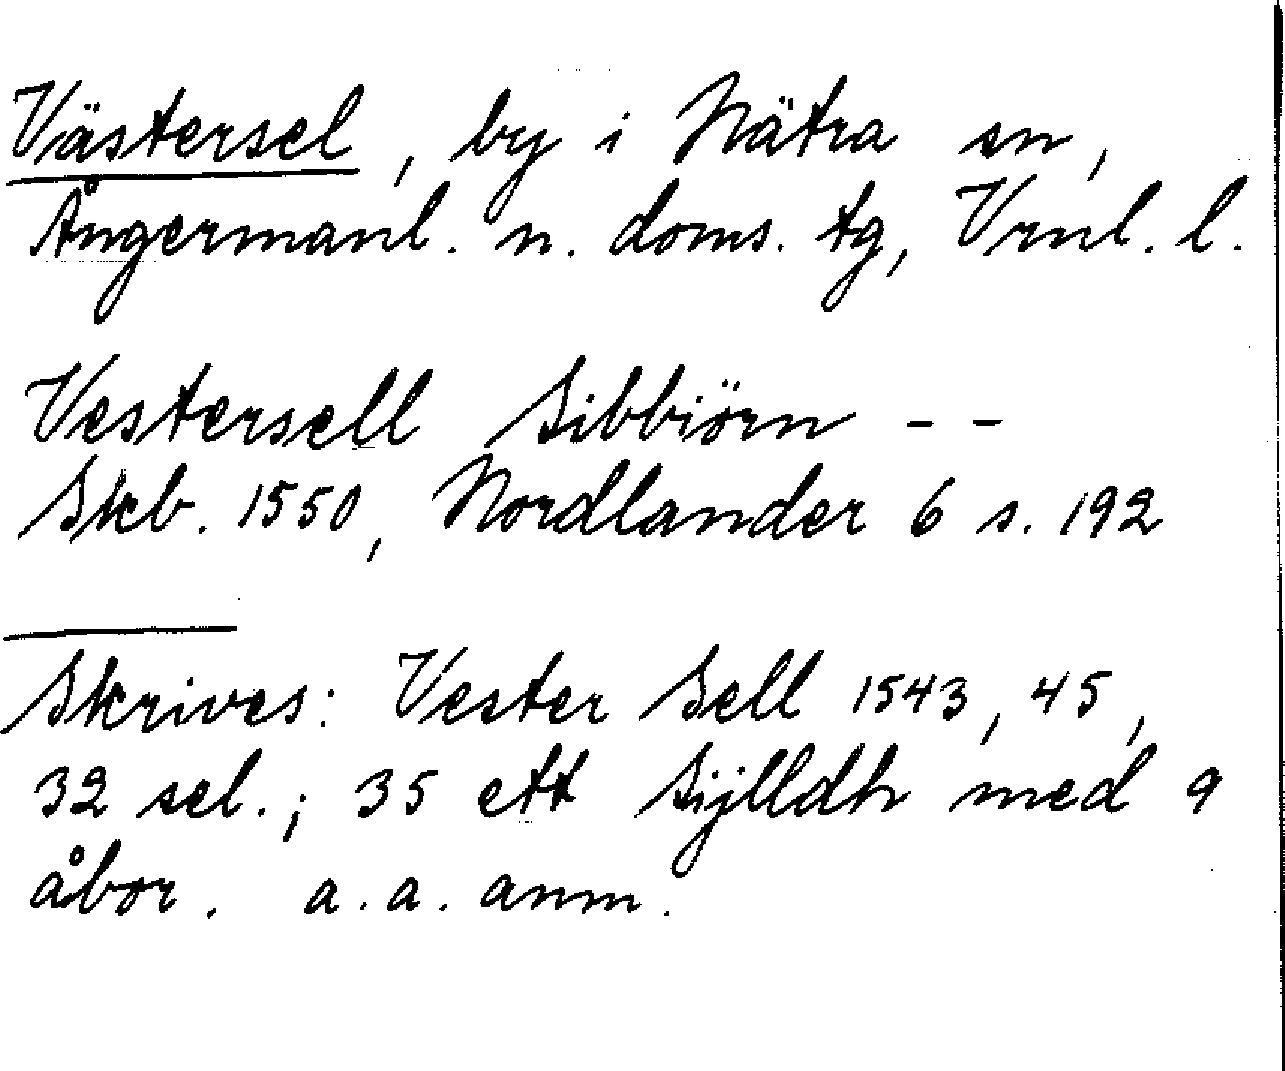 Västersel, by i Nätra sn,
Ångermanl. n. doms. tg, Vrnl. l.
Vestersell Sibbiörn - -
Skb. 1550, Nordlander 6 s. 192
Skrives: Vester Sell 1543, 45,
32 sel.; 35 ett Sijlldh med 9
åbor. a. a. anm.